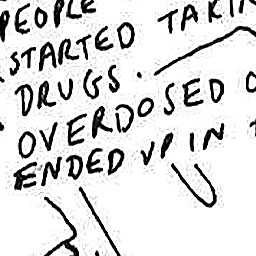 PEOPLE
STARTED TAKIN
DRUGS.
OVERDOSED
ENDED UP IN